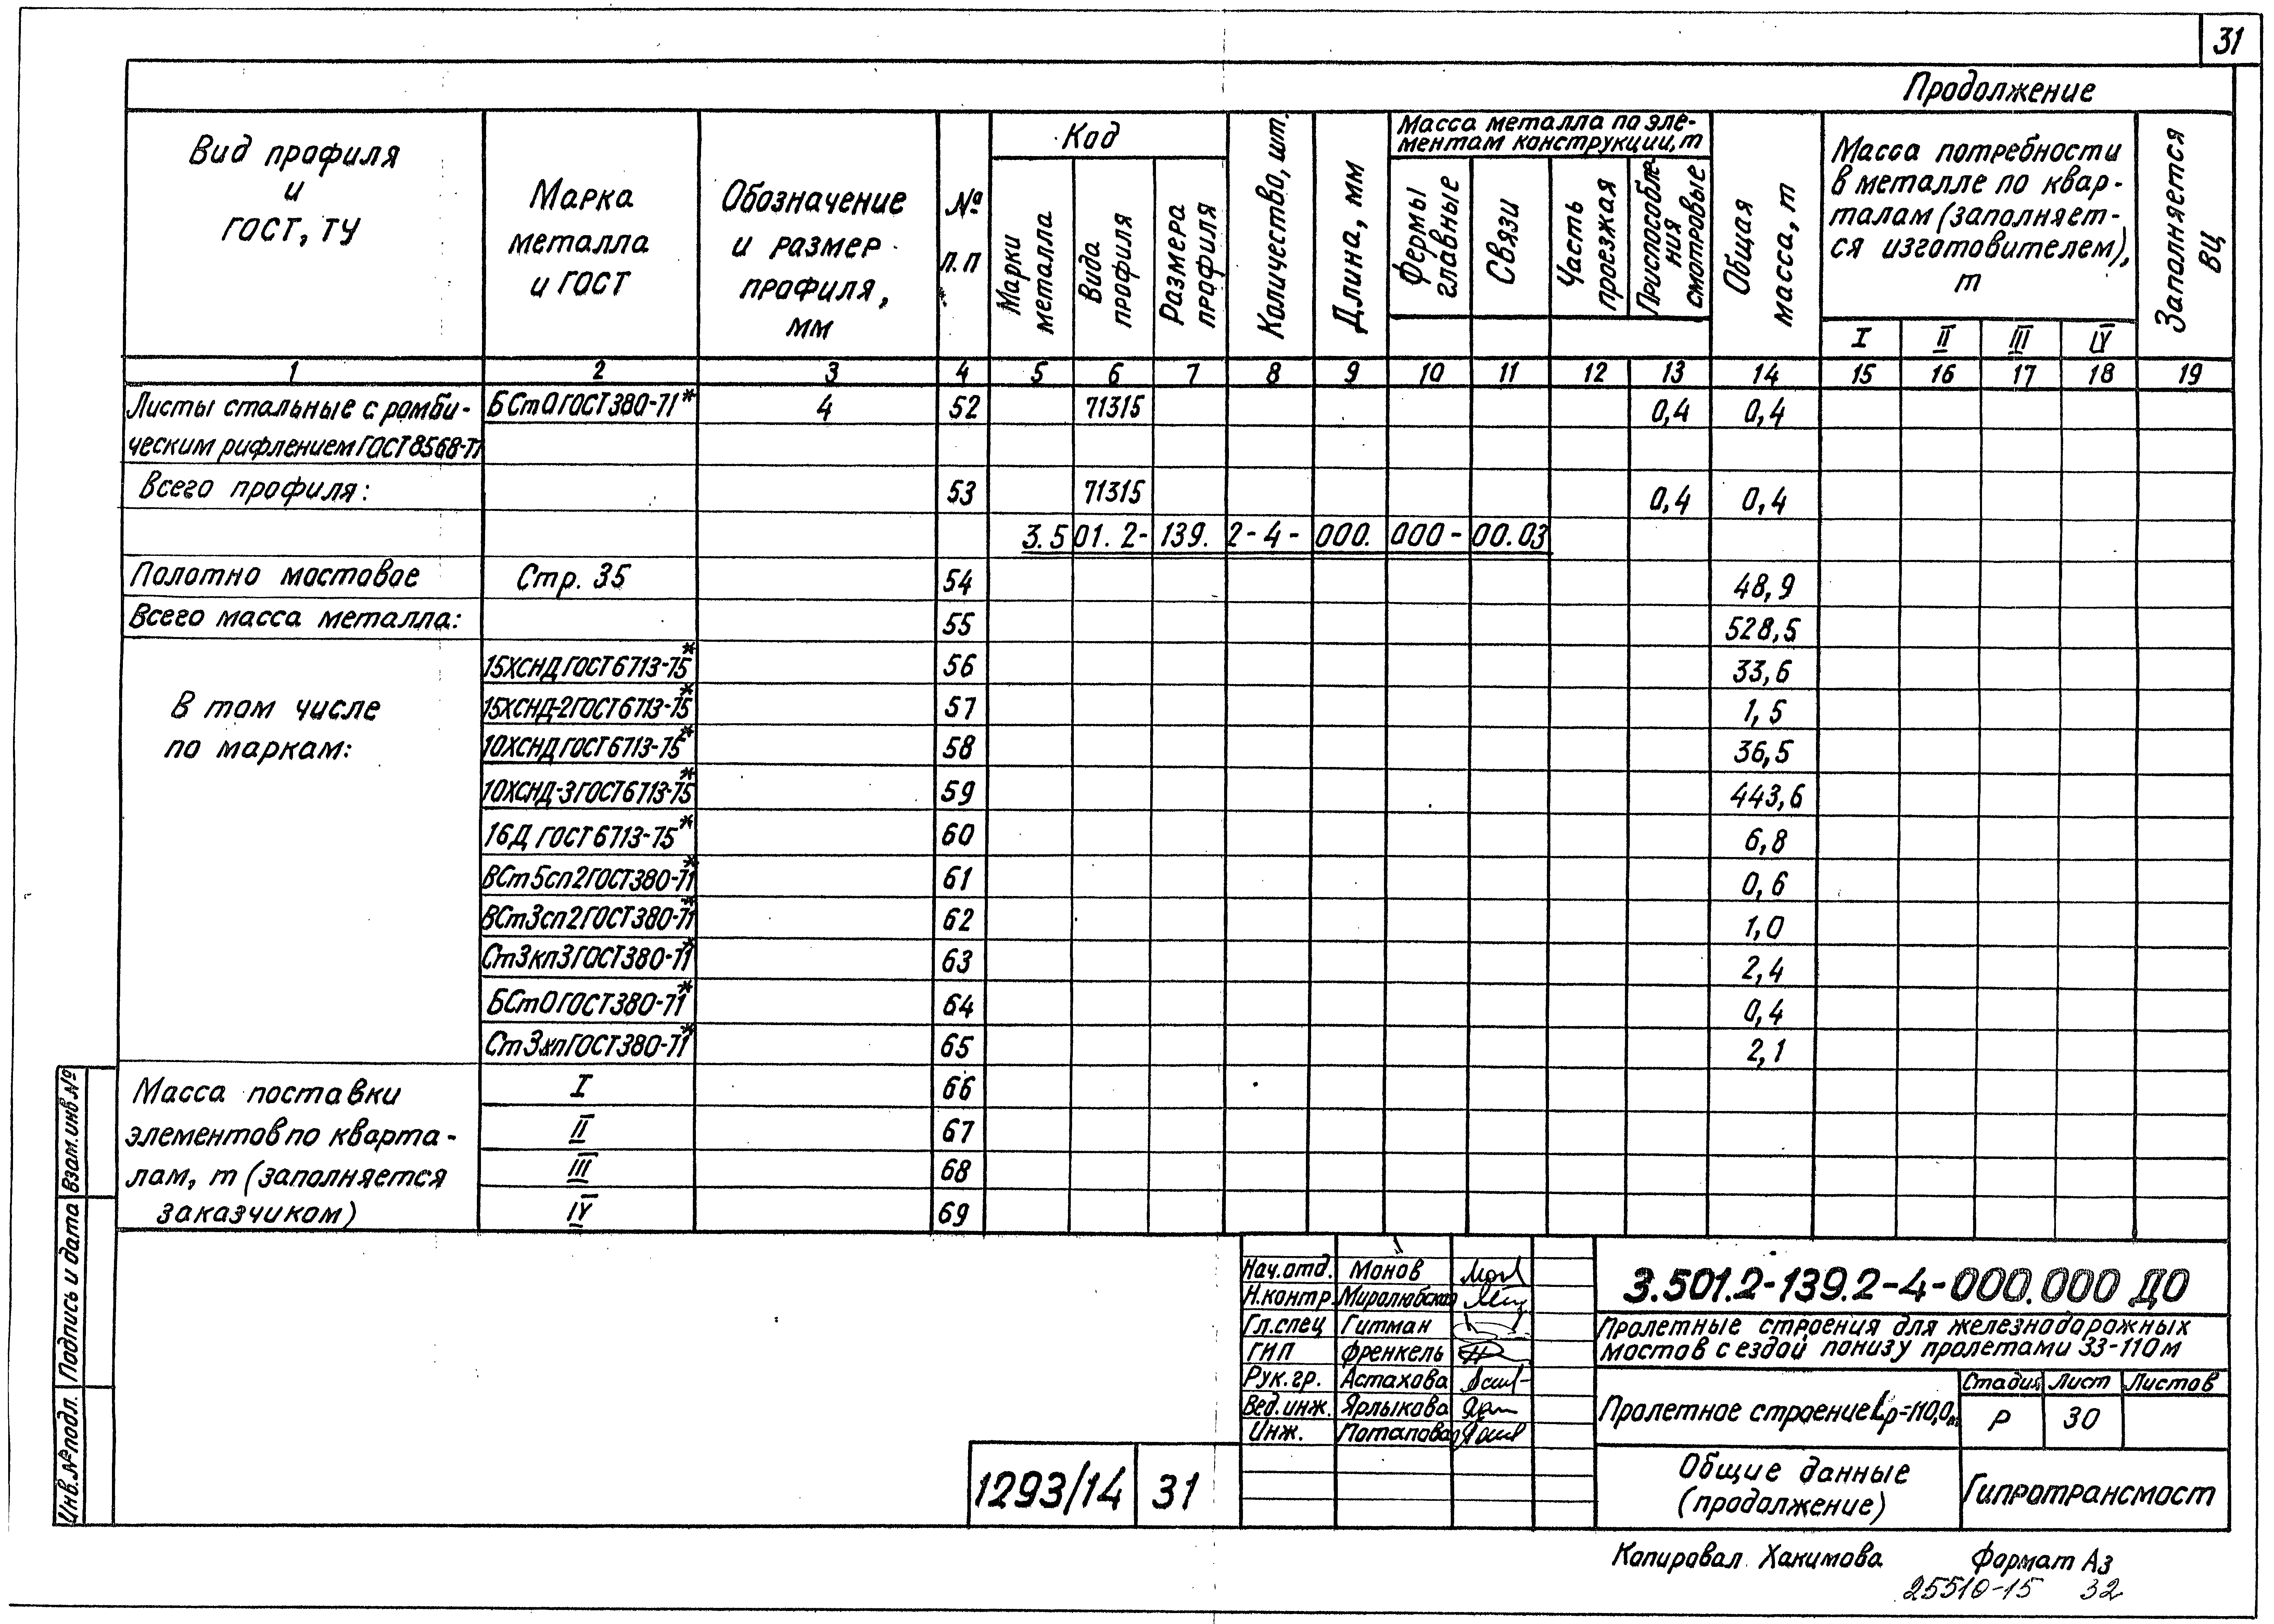 31
Продолжение
Вид профиля и ГОСТ, ТУ
Марка металла и ГОСТ
Обозначение и размер профиля, мм
№ п.п
Код
Марки металла
Вида профиля
Размера профиля
Количество, шт.
Длина, мм
Масса металла по элементам конструкции, т
Фермы главные
Связи
Часть проезжая
Приспособления смотровые
Общая масса, т
Масса потребности в металле по кварталам (заполняется изготовителем), т
I II III IV
Заполняется ВЦ
1 2 3 4 5 6 7 8 9 10 11 12 13 14 15 16 17 18 19
Листы стальные с ромби- БСт0 ГОСТ 380-71* 4 52 71315 0,4 0,4
ческим рифлением ГОСТ 8568-77
Всего профиля: 53 71315 0,4 0,4
3.501.2-139.2-4-000.000-00.03
Полотно мостовое Стр. 35 54 48,9
Всего масса металла: 55 528,5
15ХСНД ГОСТ 6713-75* 56 33,6
В том числе 15ХСНД-2 ГОСТ 6713-75* 57 1,5
по маркам: 10ХСНД ГОСТ 6713-75* 58 36,5
10ХСНД-3 ГОСТ 6713-75* 59 443,6
16Д ГОСТ 6713-75* 60 6,8
ВСт5сп2 ГОСТ 380-71* 61 0,6
ВСт3сп2 ГОСТ 380-71* 62 1,0
Ст3кп3 ГОСТ 380-71* 63 2,4
БСт0 ГОСТ 380-71* 64 0,4
Ст3кп ГОСТ 380-71* 65 2,1
Масса поставки I 66
элементов по кварта- II 67
лам, т (заполняется III 68
заказчиком) IV 69
Взам. инв. №
Подпись и дата
Инв. № подл.
Нач. отд. Монов
Н. контр. Миролюбская
Гл. спец Гитман
ГИП Френкель
Рук. гр. Астахова
Вед. инж. Ярлыкова
Инж. Потапова
3.501.2-139.2-4-000.000 ДО
Пролетные строения для железнодорожных
мостов с ездой понизу пролетами 33-110 м
Пролетное строение Lр=110,0 м
Стадия Лист Листов
Р 30
Общие данные
(продолжение)
Гипротрансмост
1293/14 31
Копировал Хакимова Формат А3
25510-15 32